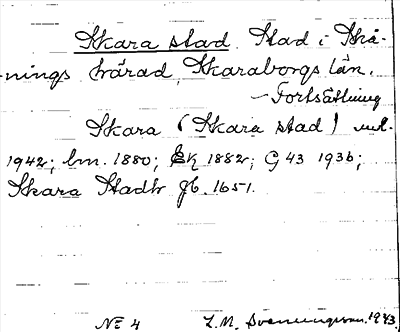 Skara stad. Stad i Skå-
nings härad, Skaraborgs län.
— Fortsättning
Skara (Skara stad)
1942; lm. 1880; Ek 1882; G 43 1936;
Skara Stadh Jb. 1651.
No 4 L. M. Svenungsson. 1943.